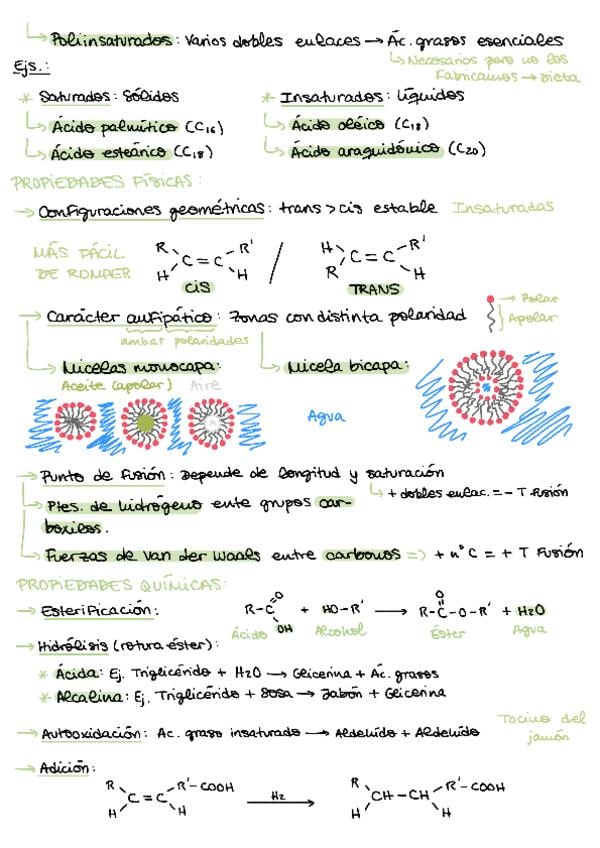 ↳ Poliinsaturados: Varios dobles enlaces → Ác. grasos esenciales
Ejs.:
↳ Necesarios pero no los
fabricamos → Dieta
* Saturados: Sólidos
* Insaturados: Líquidos
↳ Ácido palmítico (C16)
↳ Ácido oléico (C18)
↳ Ácido esteárico (C18)
↳ Ácido araquidónico (C20)
PROPIEDADES FÍSICAS:
→ Configuraciones geométricas: trans > cis estable Insaturadas
MÁS FÁCIL
DE ROMPER
R R' H R'
C = C / C = C
H H R H
CIS TRANS
→ Carácter anfipático: Zonas con distinta polaridad
→ Polar
Apolar
ambas polaridades
↳ Micelas monocapa:
↳ Micela bicapa:
Aceite (apolar) Aire
Agua
→ Punto de fusión: Depende de longitud y saturación
↳ + dobles enlac. = - T fusión
→ Ptes. de hidrógeno ente grupos car-
boxilos.
→ Fuerzas de Van der Waals entre carbonos => + nº C = + T fusión
PROPIEDADES QUÍMICAS:
→ Esterificación: R-C=O OH + HO-R' → R-C=O-O-R' + H2O
Ácido Alcohol Éster Agua
→ Hidrólisis (rotura éster):
* Ácida: Ej. Triglicérido + H2O → Glicerina + Ác. grasos
* Alcalina: Ej. Triglicérido + Sosa → Jabón + Glicerina
→ Autooxidación: Ac. graso insaturado → Aldehído + Aldehído
Tocino del
jamón
→ Adición:
R R'-COOH R R'-COOH
C = C H2 → CH-CH
H H H H